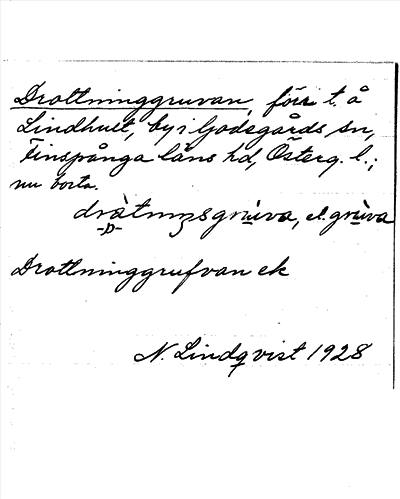 Drottninggruvan, förr t. å
Lindhult, by i Godegårds sn,
Finspånga läns hd, Österg. l.;
nu borta.
dràtnıŋsgrùva, el. grùva
-p-
Drottninggrufvan ek
N. Lindqvist 1928